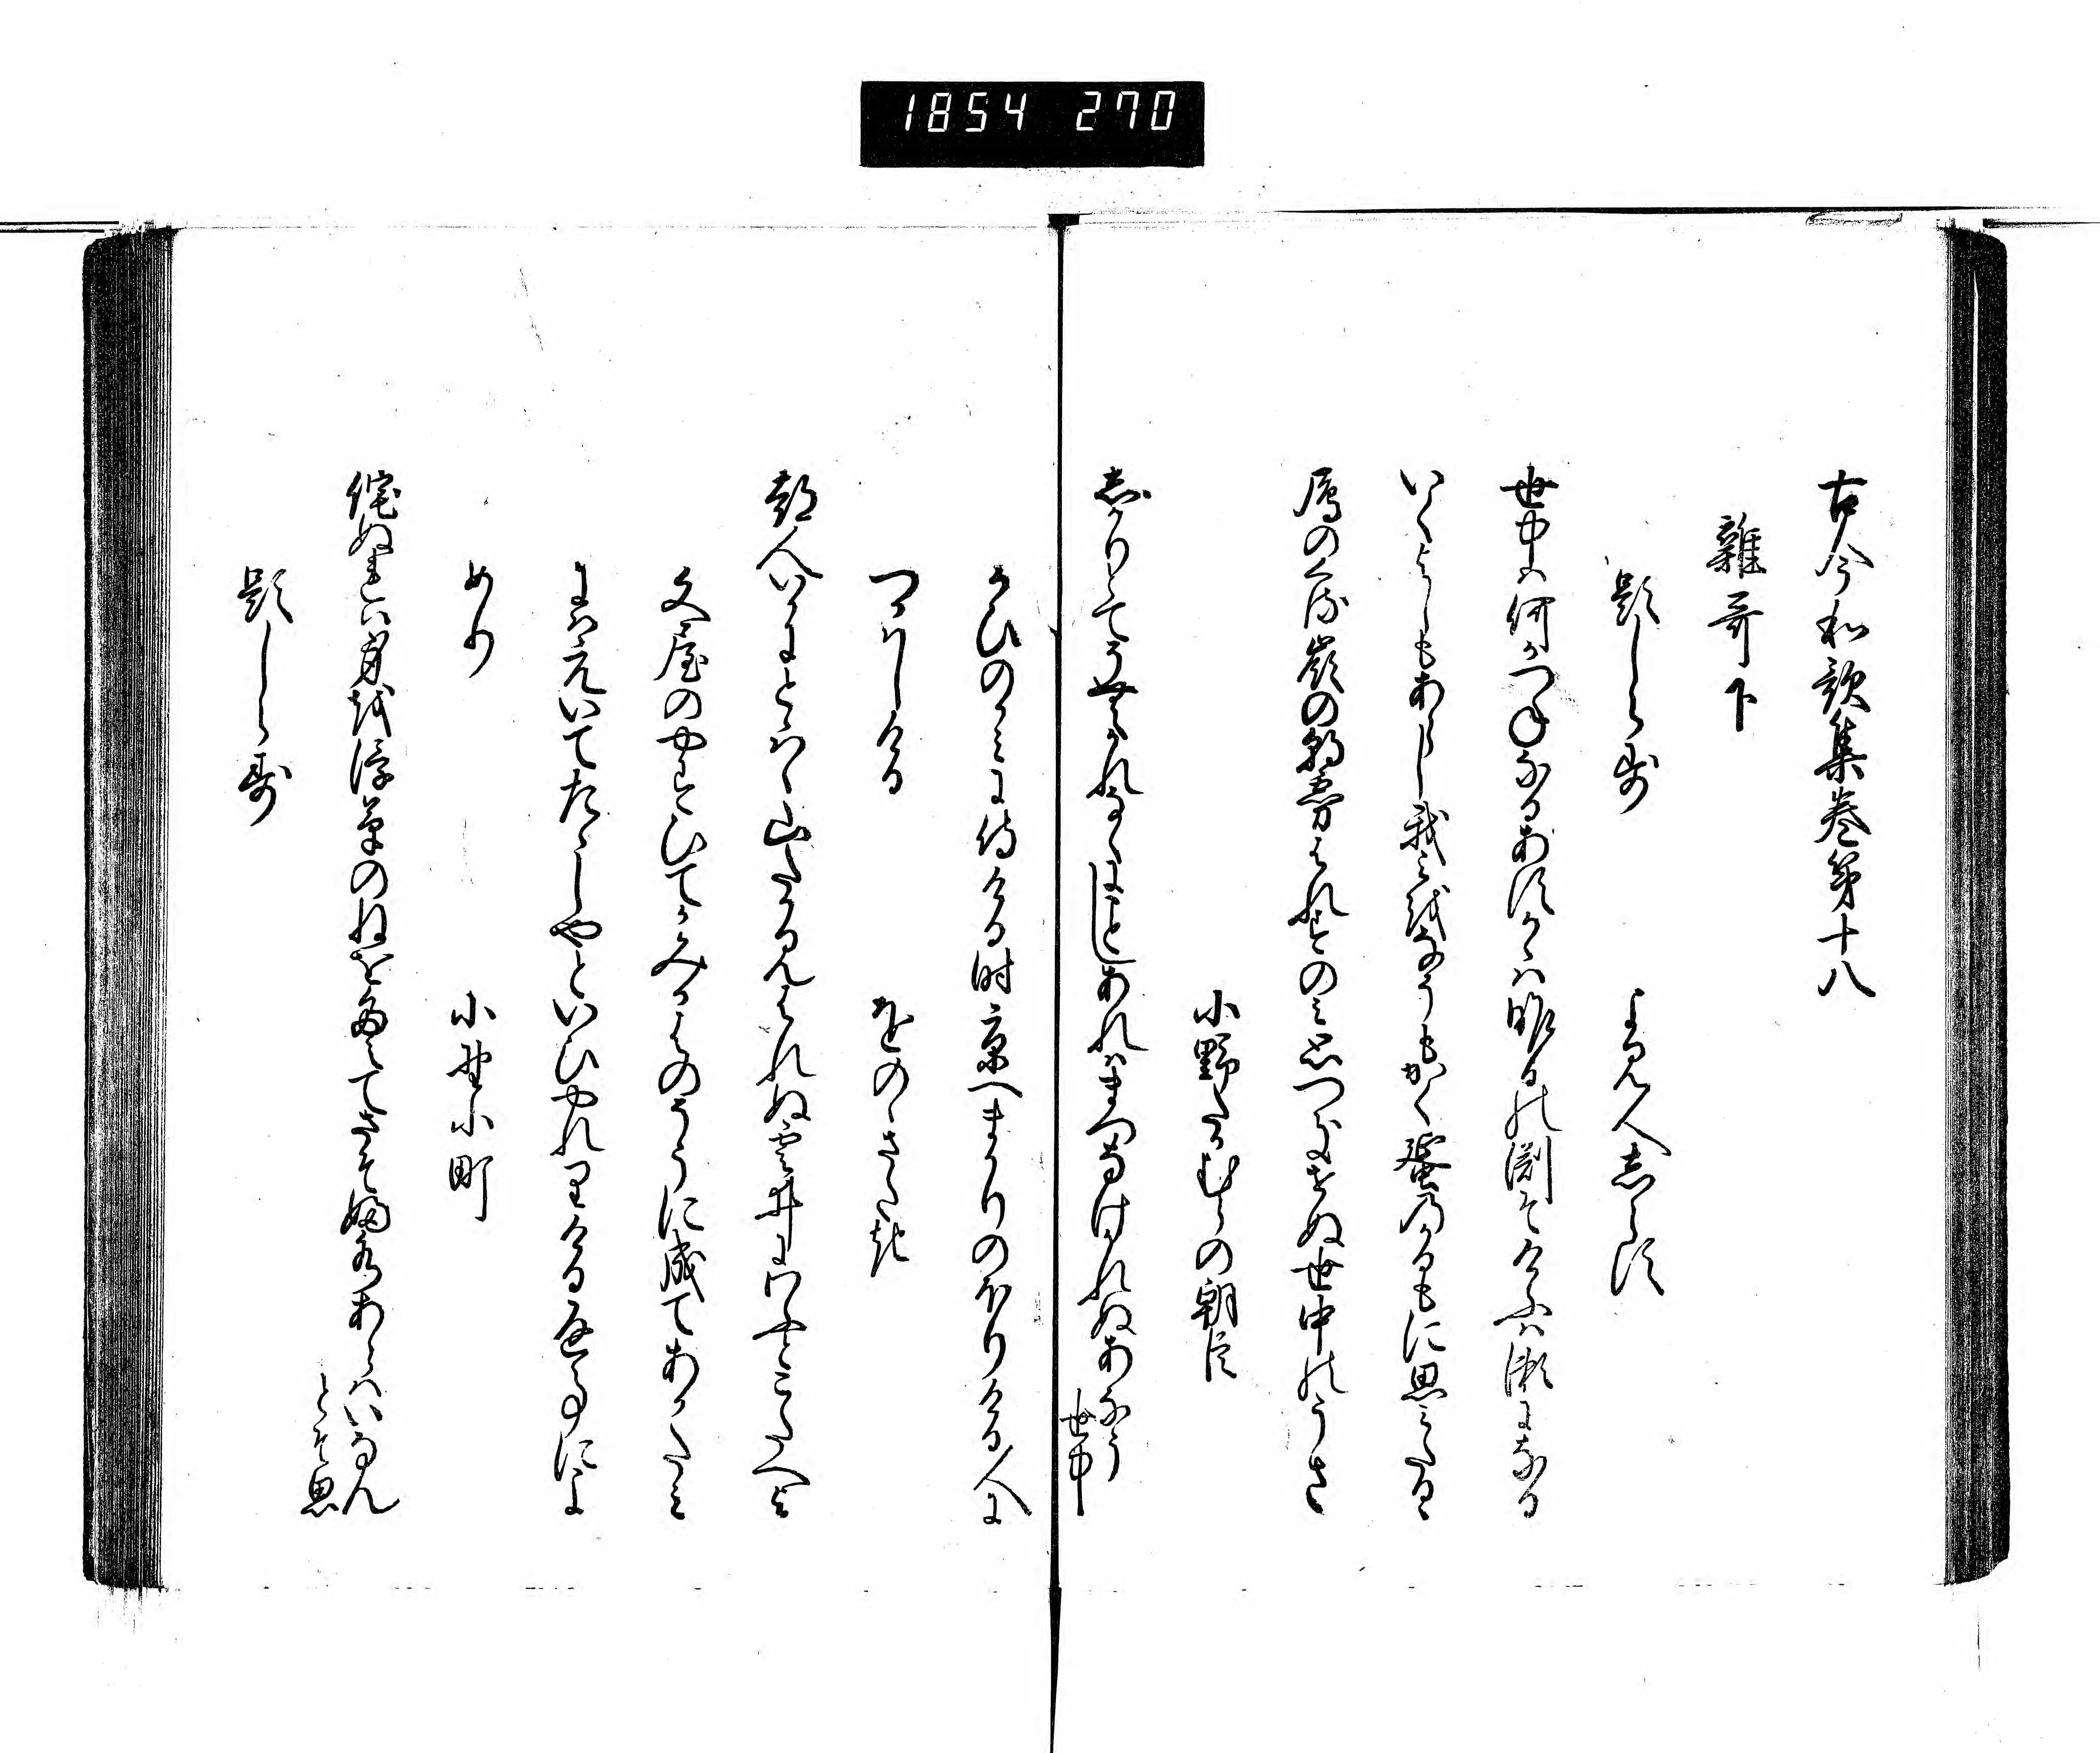 1854 270
古今和歌集巻第十八
雑哥下
題しらす　よみ人しらす
世中は何かつねなるあすかゝは昨日の渕そけふは瀬になる
いくよしもあらし我みをなそもかく蜑のかるもに思みたるゝ
鴈のくる嶺の朝霧はれすのみ思つきせぬ世中のうさ
小野たかむらの朝臣
しかりとてそむかれなくにことしあれはまつなけかれぬあなう
世中
かひのかみに侍ける時京へまかりのほりける人に
つかはしける　をのゝさたき
都人いかにとはゝ山たかみはれぬ雲井にわふとこたへよ
文屋のやすひてかみかはのそうに成てあかたみ
にはえいてたゝしやといひやれりける返事によ
める　小野小町
侘ぬれは身を浮草のねをたえてさそふ水あらはいなん
とそ思
題しらす